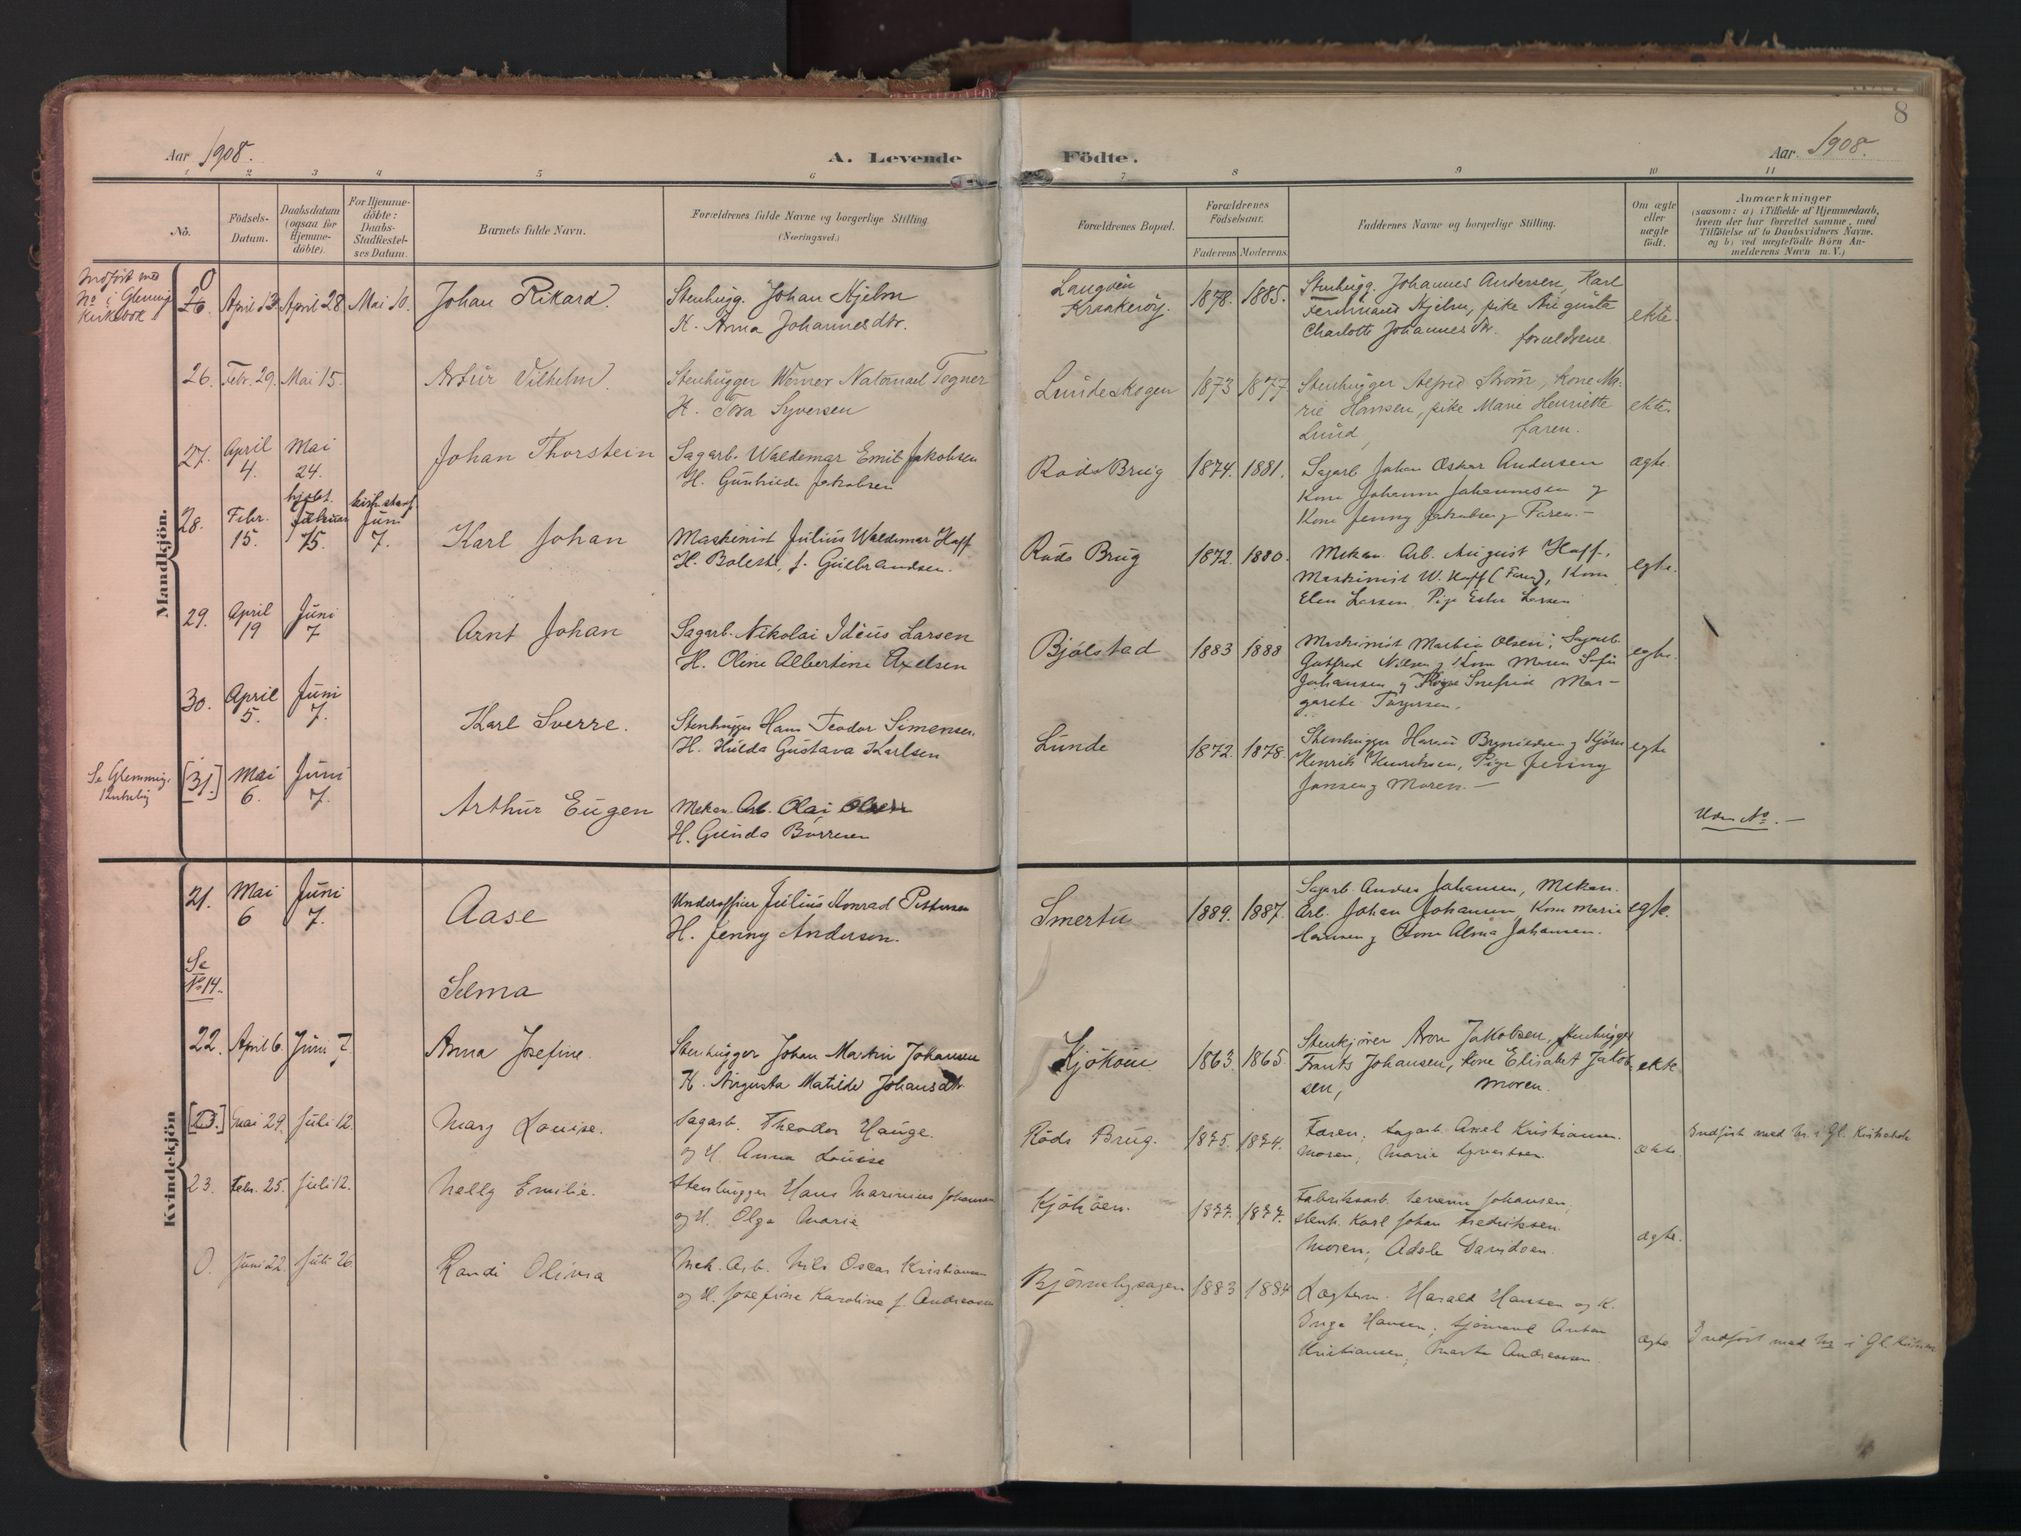 8
Aar 1908.
A. Levende Födte.
Aar 1908.
1 2 3 4 5 6 7 8 9 10 11
No.
Födsels-
Datum.
Daabsdatum
(ogsaa for
Hjemme-
döbte).
For Hjemme-
döbte:
Daabs-
Stadfæstel-
ses Datum.
Barnets fulde Navn.
Forældrenes fulde Navne og borgerlige Stilling.
(Næringsvei.)
Forældrenes Bopæl.
Forældrenes
Födselsaar.
Faderens Moderens
Faddernes Navne og borgerlige Stilling.
Om ægte
eller
uægte
födt.
Anmærkninger
(saasom: a) i Tilfælde af Hjemmedaab,
hvem der har forrettet samme, med
Tilföielse af to Daabsvidners Navne.
og b) ved uægtefödte Börn An-
melderens Navn m. V.)
Mandkjön.
Indført med
No i Glemmig
Kirkebok
0
April 13 April 28 Mai 10.
Johan Rikard.
Stenhugg. Johan Hjelm
H. Anna Johannesdtr.
Kraakerøy.
1878. 1885.
Stenhugg. Johannes Andersen, Karl
Ferdinand Hjelm, pike Augusta
Charlotte Johannesdtr.
forældrene.
ekte.
26. Febr. 29. Mai 15.
Artur Vilhelm.
Stenhugger Werner Natanael Togner
H. Tora Syversen
Lundeskogen
1873 1877
Stenhugger Alfred Strøm, kone Ma-
rie Hansen, pike Marie Henriette
Lund, faren.
ekte.
27. April 4. Mai 24.
Johan Thorstein
Sagarb. Waldemar Emil Jakobsen
H. Gunhilde Jakobsen
Røds Brug
1874. 1881.
Sagarb. Johan Oskar Andersen
Kone Johanne Johannesen og
Kone Jenny Jakobsen og Faren.-
ægte.
28. Febr. 15. 15. Juni 7.
Karl Johan
Maskinist Julius Waldemar Hoff
H. Bolette, f. Gulbrandsen.
Røds Brug
1872. 1880.
Mekan. Arb. August Hoff,
Maskinist W. Hoff (Faren), Kone
Elen Larsen, Pige Ester Larsen
egte.
29. April 19 Juni 7
Arnt Johan
Sagarb. Nikolai Ideus Larsen
H. Oline Albertine Axelsen
Bjølstad
1883 1888
Maskinist Martin Olsen, Sagarb.
Gotfred Nilsen og Kone Maren Sofie
Johansen og Pige Snefrid Mar-
grete Torgersen.
egte.
30. April 5. Juni 7.
Karl Sverre.
Stenhugger Hans Teodor Simensen
H. Hulda Gustava Karlsen
Lunde
1872. 1878.
Henrik Henriksen, Pige Jenny
Jansen og Moren.-
egte
Se Glemmig.
[31.] Mai 6. Juni 7.
Arthur Eugen
Mekan. Arb. Olai Olsen
H. Gunda Børresen
Uden No.-
Kvindekjön
21. Mai 6 Juni 7.
Aase
Underofficer Julius Konrad Pettersen
H. Jenny Andersen.
Smertu
1889. 1887.
Sagarb. Anders Johansen, Mekan.
Arb. Johan Johansen, Kone Marie
Hansen og Kone Alma Johansen.
egte.
Se
No 14.
Selma
22. April 6. Juni 7.
Anna Josefine.
Stenhugger Johan Martin Johansen
H. Augusta Matilde Johansdtr
Kjøkøen
1863. 1865.
Stenkjører Aron Jakobsen, Stenhugger
Frants Johansen, kone Elisabet Jakob-
sen, moren.
ekte
Mai 29. Juli 12.
Mary Louise.
Sagarb. Theodor Hauge.
og H. Anna Louise
Røds Brug.
1875. 1874.
Faren; Sagarb. Axel Kristiansen.
Moren; Marie Syvertsen.
ekte.
Indført med Nr. i Gl. Kirkebok
23. Febr. 25. Juli 12.
Nelly Emilie.
Stenhugger Hans Marinius Johansen
og H. Olga Marie
Kjøkøen.
1877. 1877.
Fabriksarb. Severin Johansen;
Stenh. Karl Johan Fredriksen.
Moren; Adele Davidsen.
ægte.
0. Juni 22. Juli 26.
Randi Olivia
Mek. Arb. Nils Oscar Kristiansen
og H. Josefine Karoline f. Andreassen
Bjørnebysagen
1883 1884
Lagtem. Harald Hansen og K.
Inga Hansen; Sjømand Anton
Kristiansen; Marta Andreassen.
ægte
Indført med Nr i Gl. Kirkebok